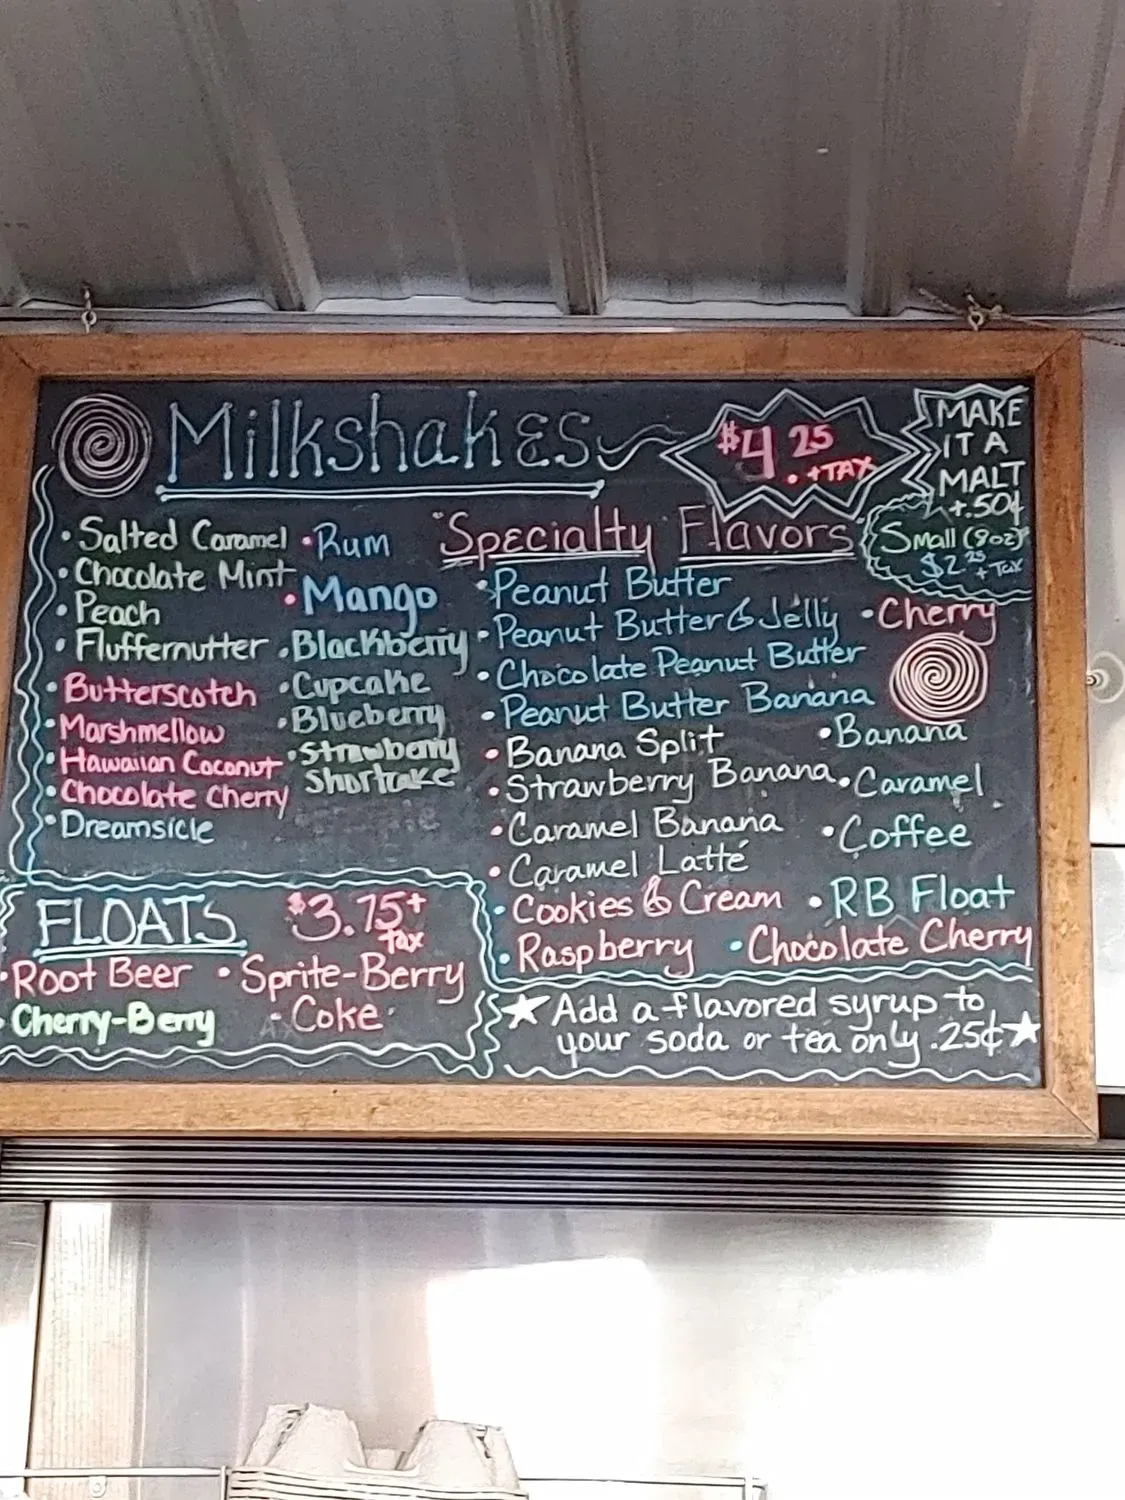 Milkshakes
$4.25
+TAX
MAKE
IT A
MALT
+.50¢
Small (8oz)
$2.25
+ Tax
• Salted Caramel
• Chocolate Mint
• Peach
• Fluffernutter
• Butterscotch
• Marshmellow
• Hawaiian Coconut
• Chocolate Cherry
• Dreamsicle
• Rum
• Mango
• Blackberry
• Cupcake
• Blueberry
• Strawberry
Shortcake
"Specialty Flavors"
• Peanut Butter
• Peanut Butter & Jelly
• Chocolate Peanut Butter
• Peanut Butter Banana
• Banana Split
• Strawberry Banana
• Caramel Banana
• Caramel Latté
• Cookies & Cream
• Raspberry
• Cherry
• Banana
• Caramel
• Coffee
• RB Float
• Chocolate Cherry
FLOATS
$3.75+
Tax
• Root Beer
• Sprite-Berry
• Cherry-Berry
• Coke
Add a flavored syrup to
your soda or tea only .25¢